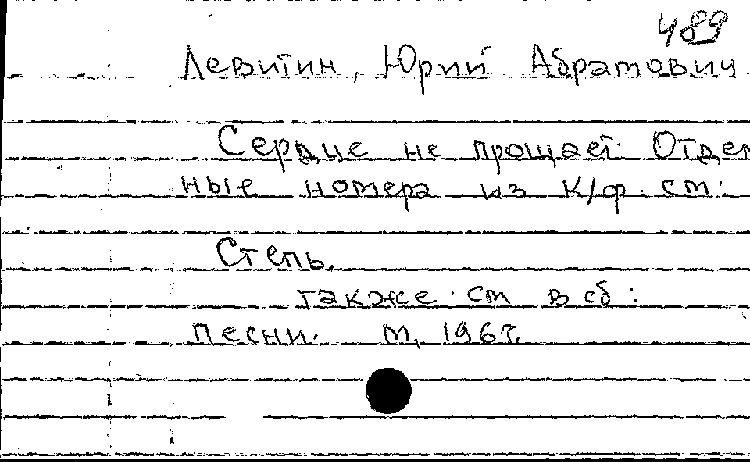 489
Левитин, Юрий Абрамович
Сердце не прощает. Отдель
ные номера из к/ф. см:
Степь.
также см в сб:
песни. М, 1967.